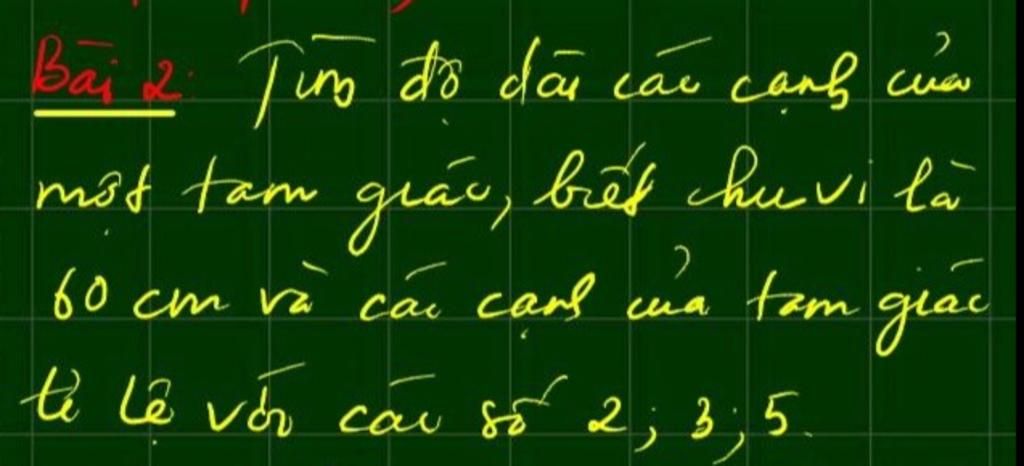 Bài 2: Tìm độ dài các cạnh của
một tam giác, biết chu vi là
60 cm và các cạnh của tam giác
tỉ lệ với các số 2; 3; 5.